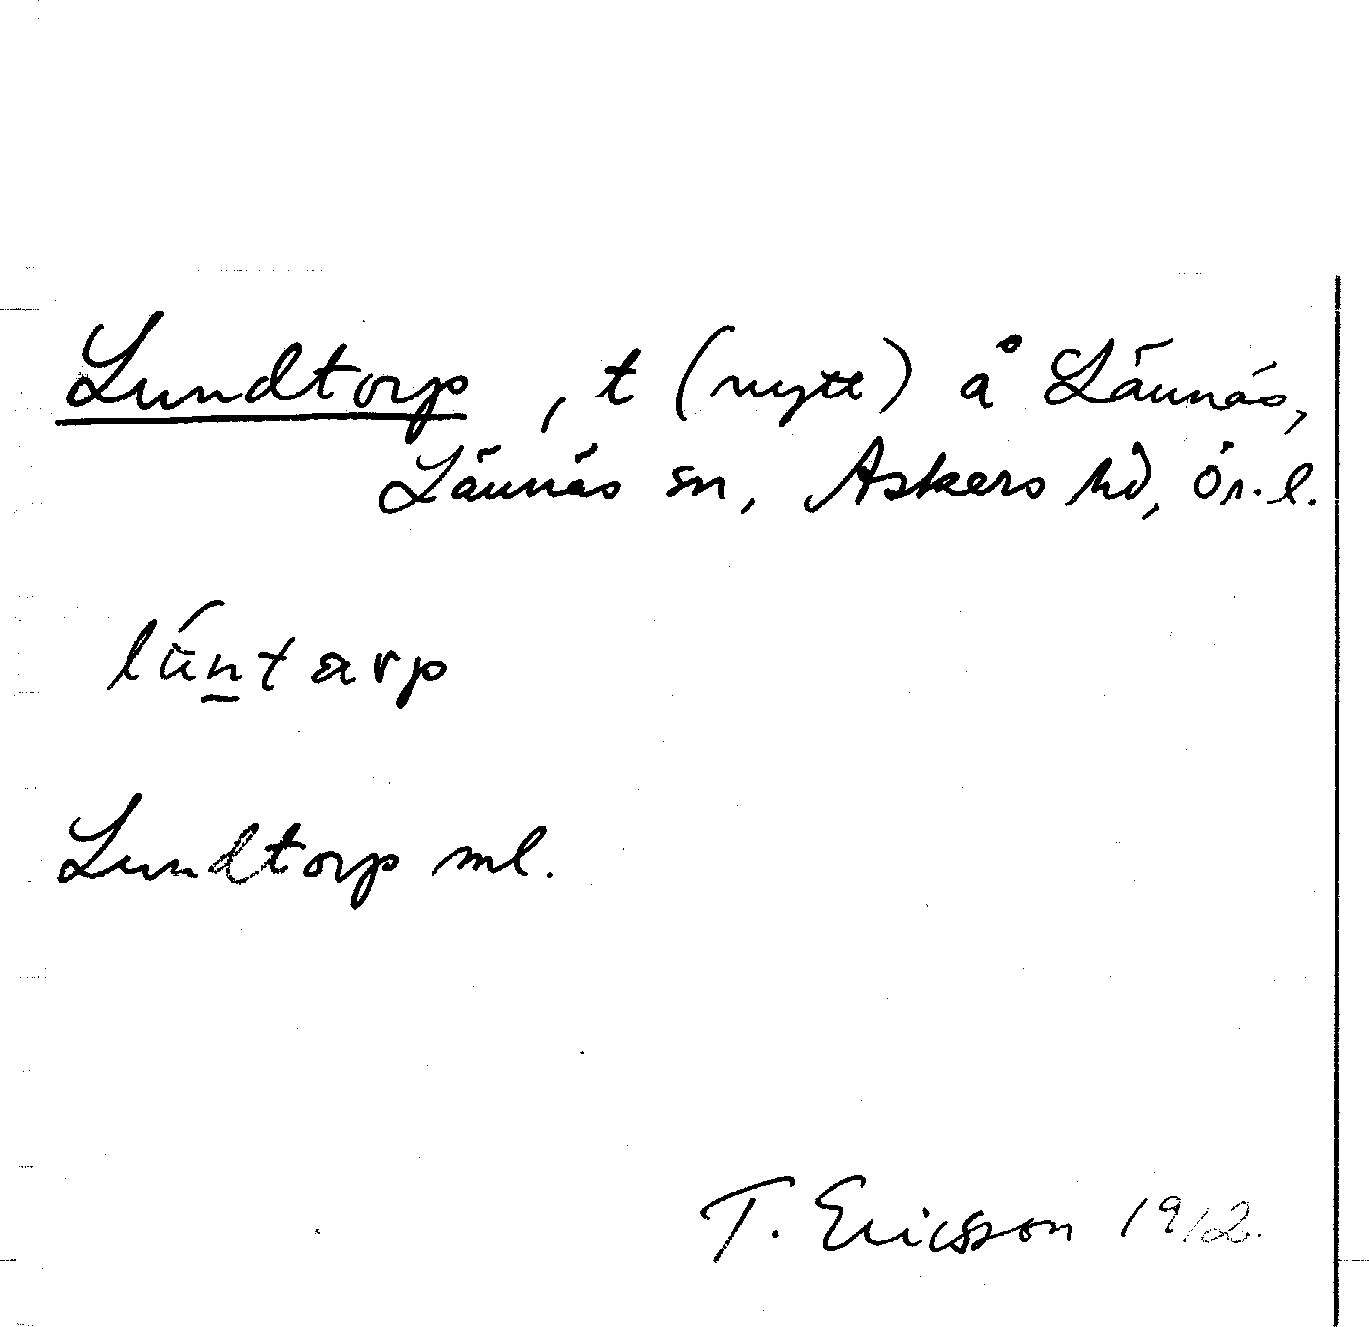 Lundtorp, t (nytt) å Lännäs,
Lännäs sn, Askers hd, Ör. l.
lúntarp
Lundtorp ml.
T. Ericsson 1912.